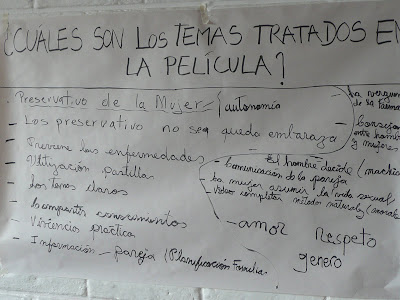 ¿CUÁLES SON LOS TEMAS TRATADOS EN
LA PELÍCULA?
- Preservativo de la Mujer = autonomía
- Los preservativo no se queda embaraza
- Previene las enfermedades
- Utilización pastillas
- Los temas claros
- Compartir conocimientos
- Vivencias práctica
- Información - pareja (Planificación Familia
La verguen
de la
entre hombre
y mujeres
- El hombre decide (muchas
- Comunicación de la pareja
- La mujer asumir la vida sexual
- Video completar métodos natural
- amor Respeto
genero